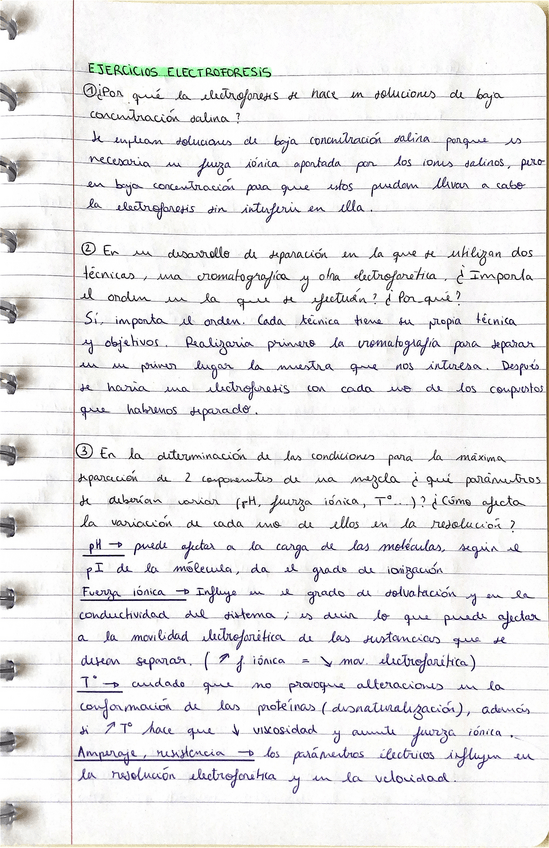 EJERCICIOS ELECTROFORESIS
① ¿Por qué la electroforesis se hace en soluciones de baja
concentración salina?
Se emplean soluciones de baja concentración salina porque es
necesaria un fuerza iónica aportada por los iones salinos, pero
en baja concentración para que estos puedan llevar a cabo
la electroforesis sin interferir en ella.
② En un desarrollo de separación en la que se utilizan dos
técnicas, una cromatográfica y otra electroforética. ¿Importa
el orden en la que se efectúan? ¿Por qué?
Sí, importa el orden. Cada técnica tiene su propia técnica
y objetivos. Realizaría primero la cromatografía para separar
en un primer lugar la muestra que nos interesa. Después
se haría una electroforesis con cada uno de los compuestos
que habremos separado.
③ En la determinación de las condiciones para la máxima
separación de 2 componentes de una mezcla ¿qué parámetros
se deberían variar (pH, fuerza iónica, Tº...)? ¿Cómo afecta
la variación de cada uno de ellos en la resolución?
pH → puede afectar a la carga de las moléculas, según el
pI de la mólecula, da el grado de ionización
Fuerza iónica → Influye en el grado de solvatación y en la
conductividad del sistema; es decir lo que puede afectar
a la movilidad electroforética de las sustancias que se
desean separar. (↗ f. iónica = ↘ mov. electroforética)
Tº → cuidado que no provoque alteraciones en la
conformación de las proteínas (desnaturalización), además
si ↗ Tº hace que ↓ viscosidad y aumente fuerza iónica.
Amperaje, resistencia → los parámetros eléctricos influyen en
la resolución electroforética y en la velocidad.